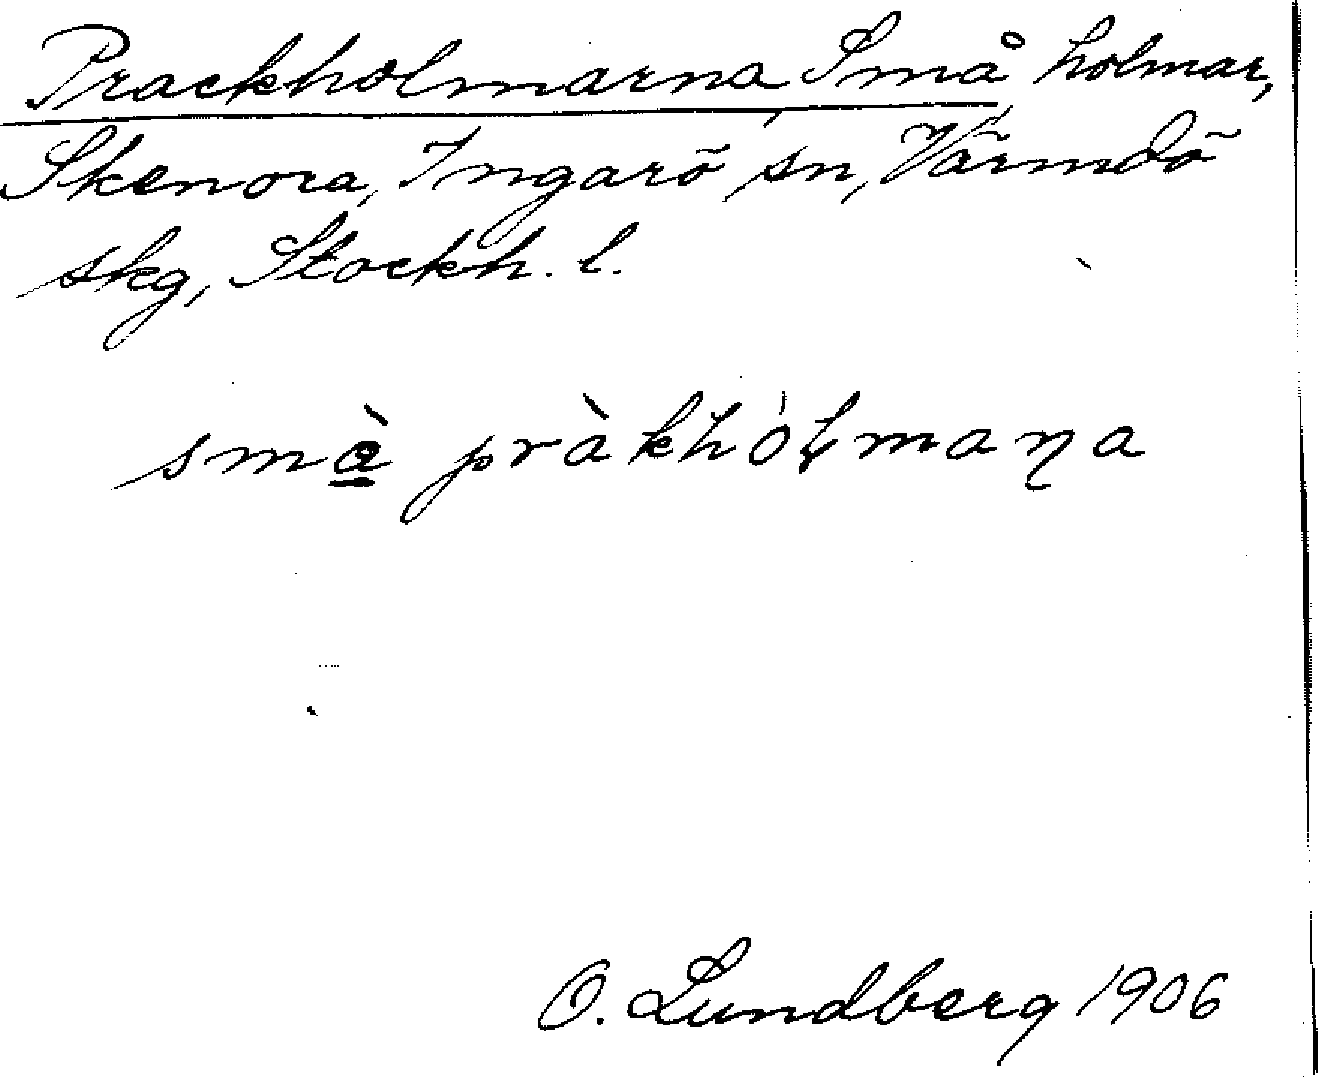 Prackholmarna, Små, holmar,
Skenora, Ingarö sn, Värmdö
skg, Stockh. l.
smà pràkhòɫmaɳa
O. Lundberg 1906